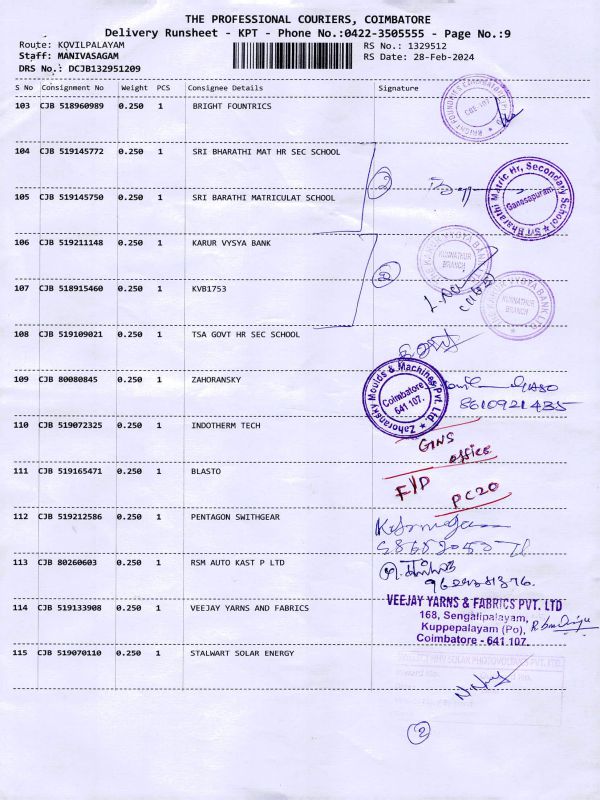 THE PROFESSIONAL COURIERS, COIMBATORE
Delivery Runsheet - KPT - Phone No.:0422-3505555 - Page No.:9
Route: KOVILPALAYAM RS No.: 1329512
Staff: MANIVASAGAM RS Date: 28-Feb-2024
DRS No.: DCJB132951209
S No Consignment No Weight PCS Consignee Details Signature
103 CJB 518960989 0.250 1 BRIGHT FOUNTRICS
104 CJB 519145772 0.250 1 SRI BHARATHI MAT HR SEC SCHOOL
2
Sri Bharathi Matric Hr, Secondary School
Ganesapuram
105 CJB 519145750 0.250 1 SRI BARATHI MATRICULAT SCHOOL
106 CJB 519211148 0.250 1 KARUR VYSYA BANK
KUNNATHUR
BRANCH
2
107 CJB 518915460 0.250 1 KVB1753
THE KARUR VYSYA BANK LTD
KUNNATHUR
BRANCH
108 CJB 519109021 0.250 1 TSA GOVT HR SEC SCHOOL
109 CJB 80080845 0.250 1 ZAHORANSKY
Zahoransky Moulds & Machines Pvt. Ltd.
Coimbatore
641 107.
8610921435
110 CJB 519072325 0.250 1 INDOTHERM TECH
office
111 CJB 519165471 0.250 1 BLASTO
F/P
PC20
112 CJB 519212586 0.250 1 PENTAGON SWITHGEAR
113 CJB 80260603 0.250 1 RSM AUTO KAST P LTD
114 CJB 519133908 0.250 1 VEEJAY YARNS AND FABRICS
VEEJAY YARNS & FABRICS PVT. LTD
168, Sengalipalayam,
Kuppepalayam (Po),
Coimbatore - 641 107.
115 CJB 519070110 0.250 1 STALWART SOLAR ENERGY
2